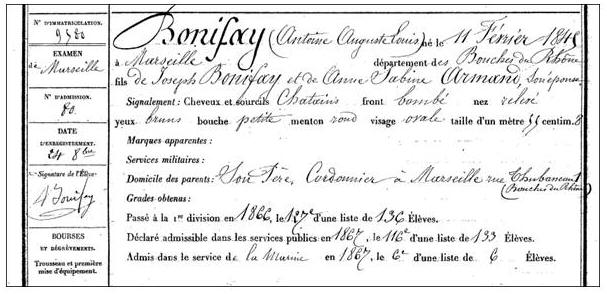 N° D'IMMATRICULATION.
9580
EXAMEN
de Marseille
N° D'ADMISSION.
80
DATE
D'ENREGISTREMENT.
24 8bre
Signature de l'Élève
A Bonifay
BOURSES
ET DÉGRÈVEMENTS.
Trousseau et première
mise d'équipement.
Bonifay (Antoine Auguste Louis) né le 11 Février 1845
à Marseille département des Bouches du Rhône
fils de Joseph Bonifay et de Anne Sabine Armand, son épouse
Signalement : Cheveux et sourcils Chatains front bombé nez relevé
yeux bruns bouche petite menton rond visage ovale taille d'un mètre 55 centim. 8
Marques apparentes :
Services militaires :
Domicile des parents : Son Père, Cordonnier à Marseille rue Thubaneau
(Bouches du Rhône)
Grades obtenus :
Passé à la 1re division en 1866, le 127e d'une liste de 136 Élèves.
Déclaré admissible dans les services publics en 1867, le 116e d'une liste de 133 Élèves.
Admis dans le service de la Marine en 1867, le 6e d'une liste de 6 Élèves.